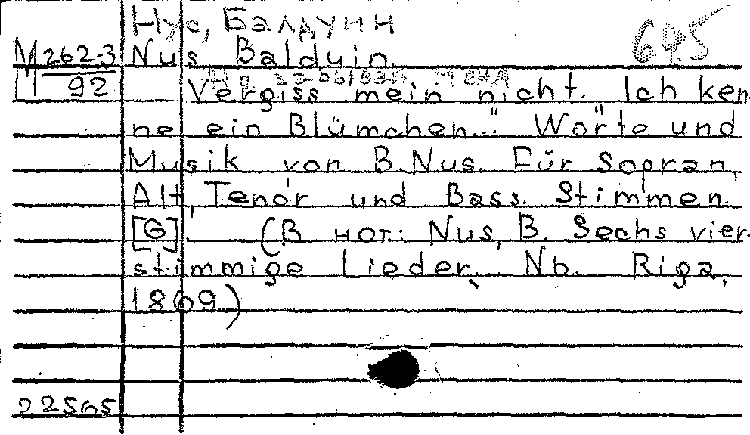 Нус, Балдуин
645
М 262-3 Nus Balduin.
92 Vergiss mein nicht. "Ich ken
ne ein Blümchen..." Worte und
Musik von B. Nus. Für Sopran,
Alt, Tenor und Bass Stimmen
[G] (В нот: Nus, B. Sechs vier-
stimmige Lieder... Nb. Riga,
1869)
22565